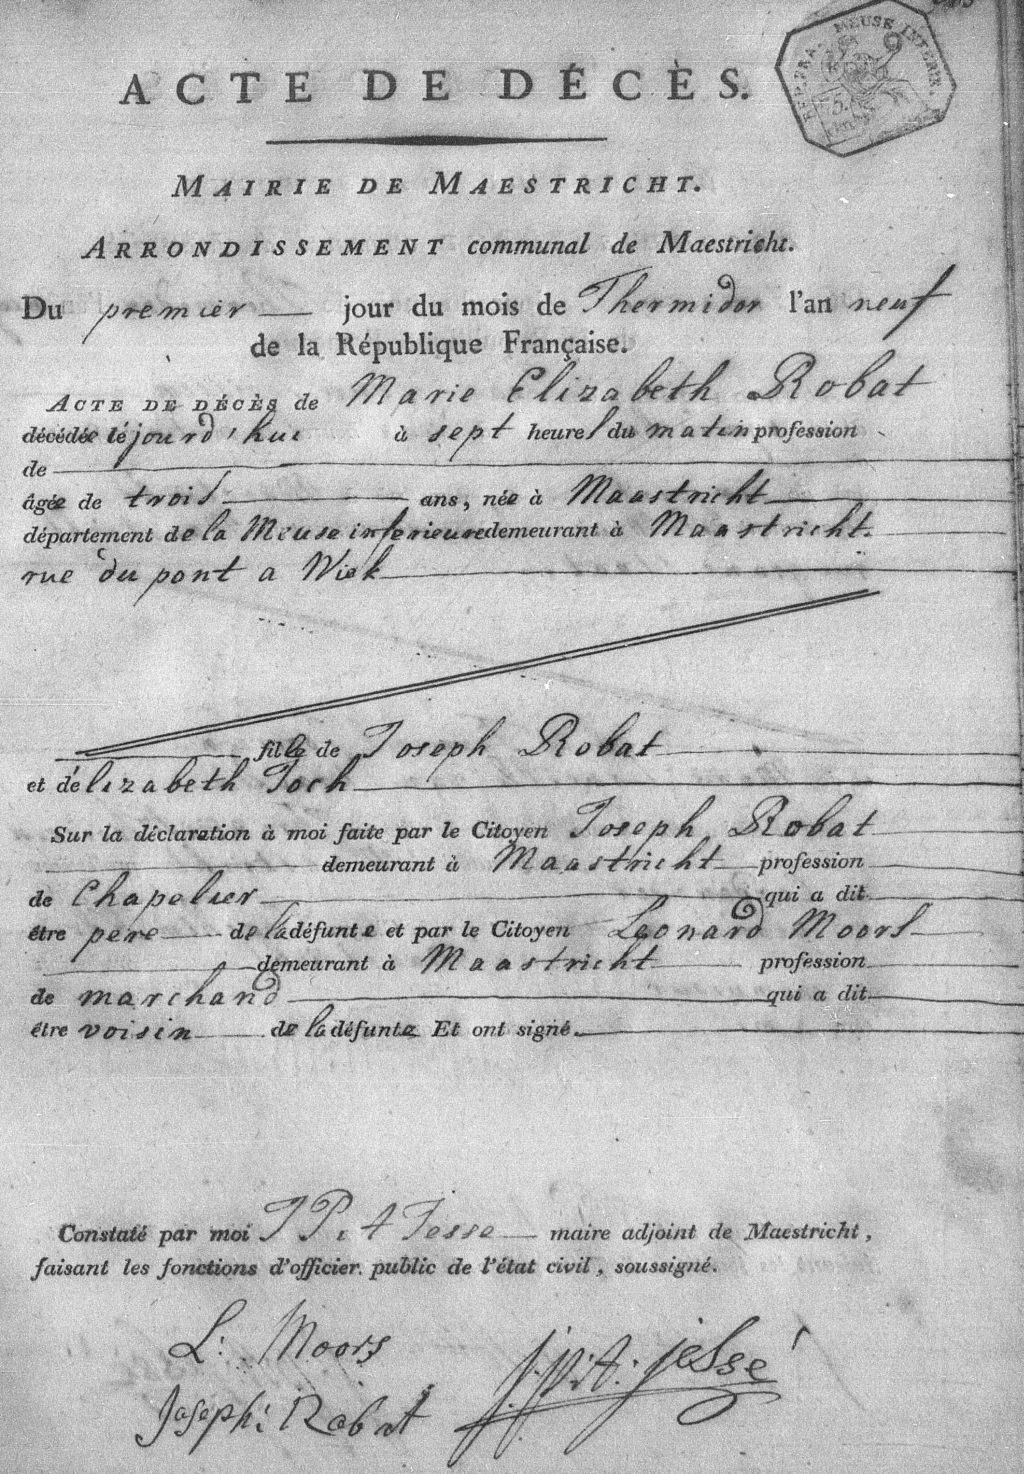 REP. FRA. MEUSE INFÉRIE.
ACTE DE DÉCÈS.
MAIRIE DE MAESTRICHT.
ARRONDISSEMENT communal de Maestricht.
Du premier jour du mois de Thermidor l'an neuf
de la République Française.
ACTE DE DÉCÈS de Marie Elizabeth Robat
décédée le jourd'hui à sept heures du matin profession
de
âgée de trois ans, née à Maastricht
département de la Meuse inferieure demeurant à Maastricht.
rue du pont a Wiek
fille de Joseph Robat
et d'élizabeth Toch
Sur la déclaration à moi faite par le Citoyen Joseph Robat
demeurant à Maastricht profession
de Chapelier qui a dit
être pere de la défunte et par le Citoyen Leonard Moors
demeurant à Maastricht profession
de marchand qui a dit
être voisin de la défunte Et ont signé.
Constaté par moi J P: A Jesse maire adjoint de Maestricht,
faisant les fonctions d'officier public de l'état civil, soussigné.
L: Moors
j. p: A: jessé
Joseph: Robat